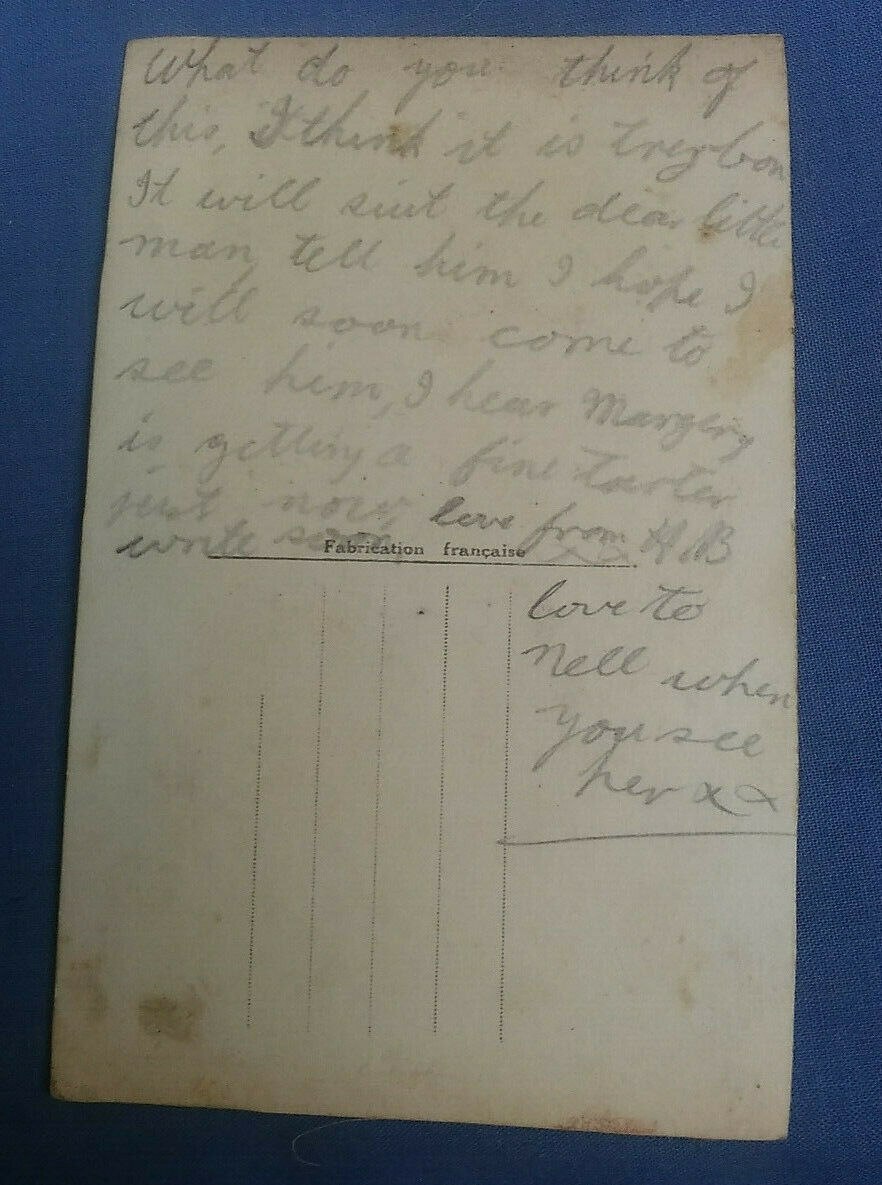 What do you think of
this, I think it is treybon
It will siut the dear little
man, tell him I hope I
will soon come to
see him, I hear Margery
is getting a fine tarter
just now, love from H.B
write soon,
Fabrication française
love to
Nell when
you see
her xx